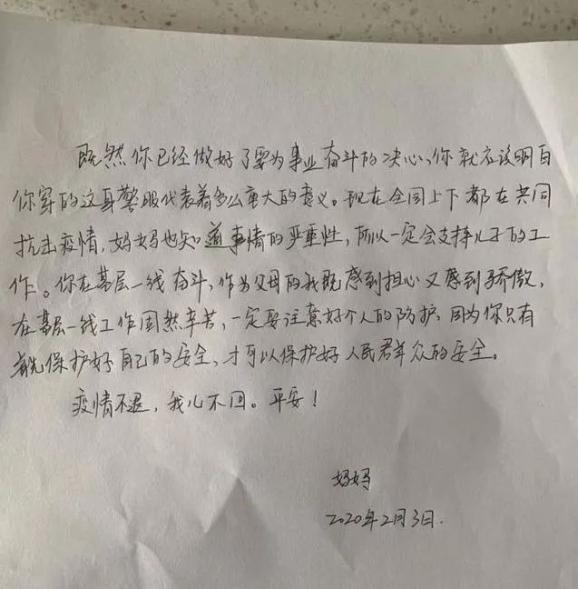 既然你已经做好了要为事业奋斗的决心、你就应该明白
你穿的这身警服代表着多么重大的意义。现在全国上下都在共同
抗击疫情，妈妈也知道事情的严重性，所以一定会支持儿子的工
作。你在基层一线奋斗，作为父母的我既感到担心又感到骄傲，
在基层一线工作固然辛苦，一定要注意好个人的防护，因为你只有
首先保护好自己的安全，才可以保护好人民群众的安全。
疫情不退，我儿不回。平安！
妈妈
2020年2月3日.